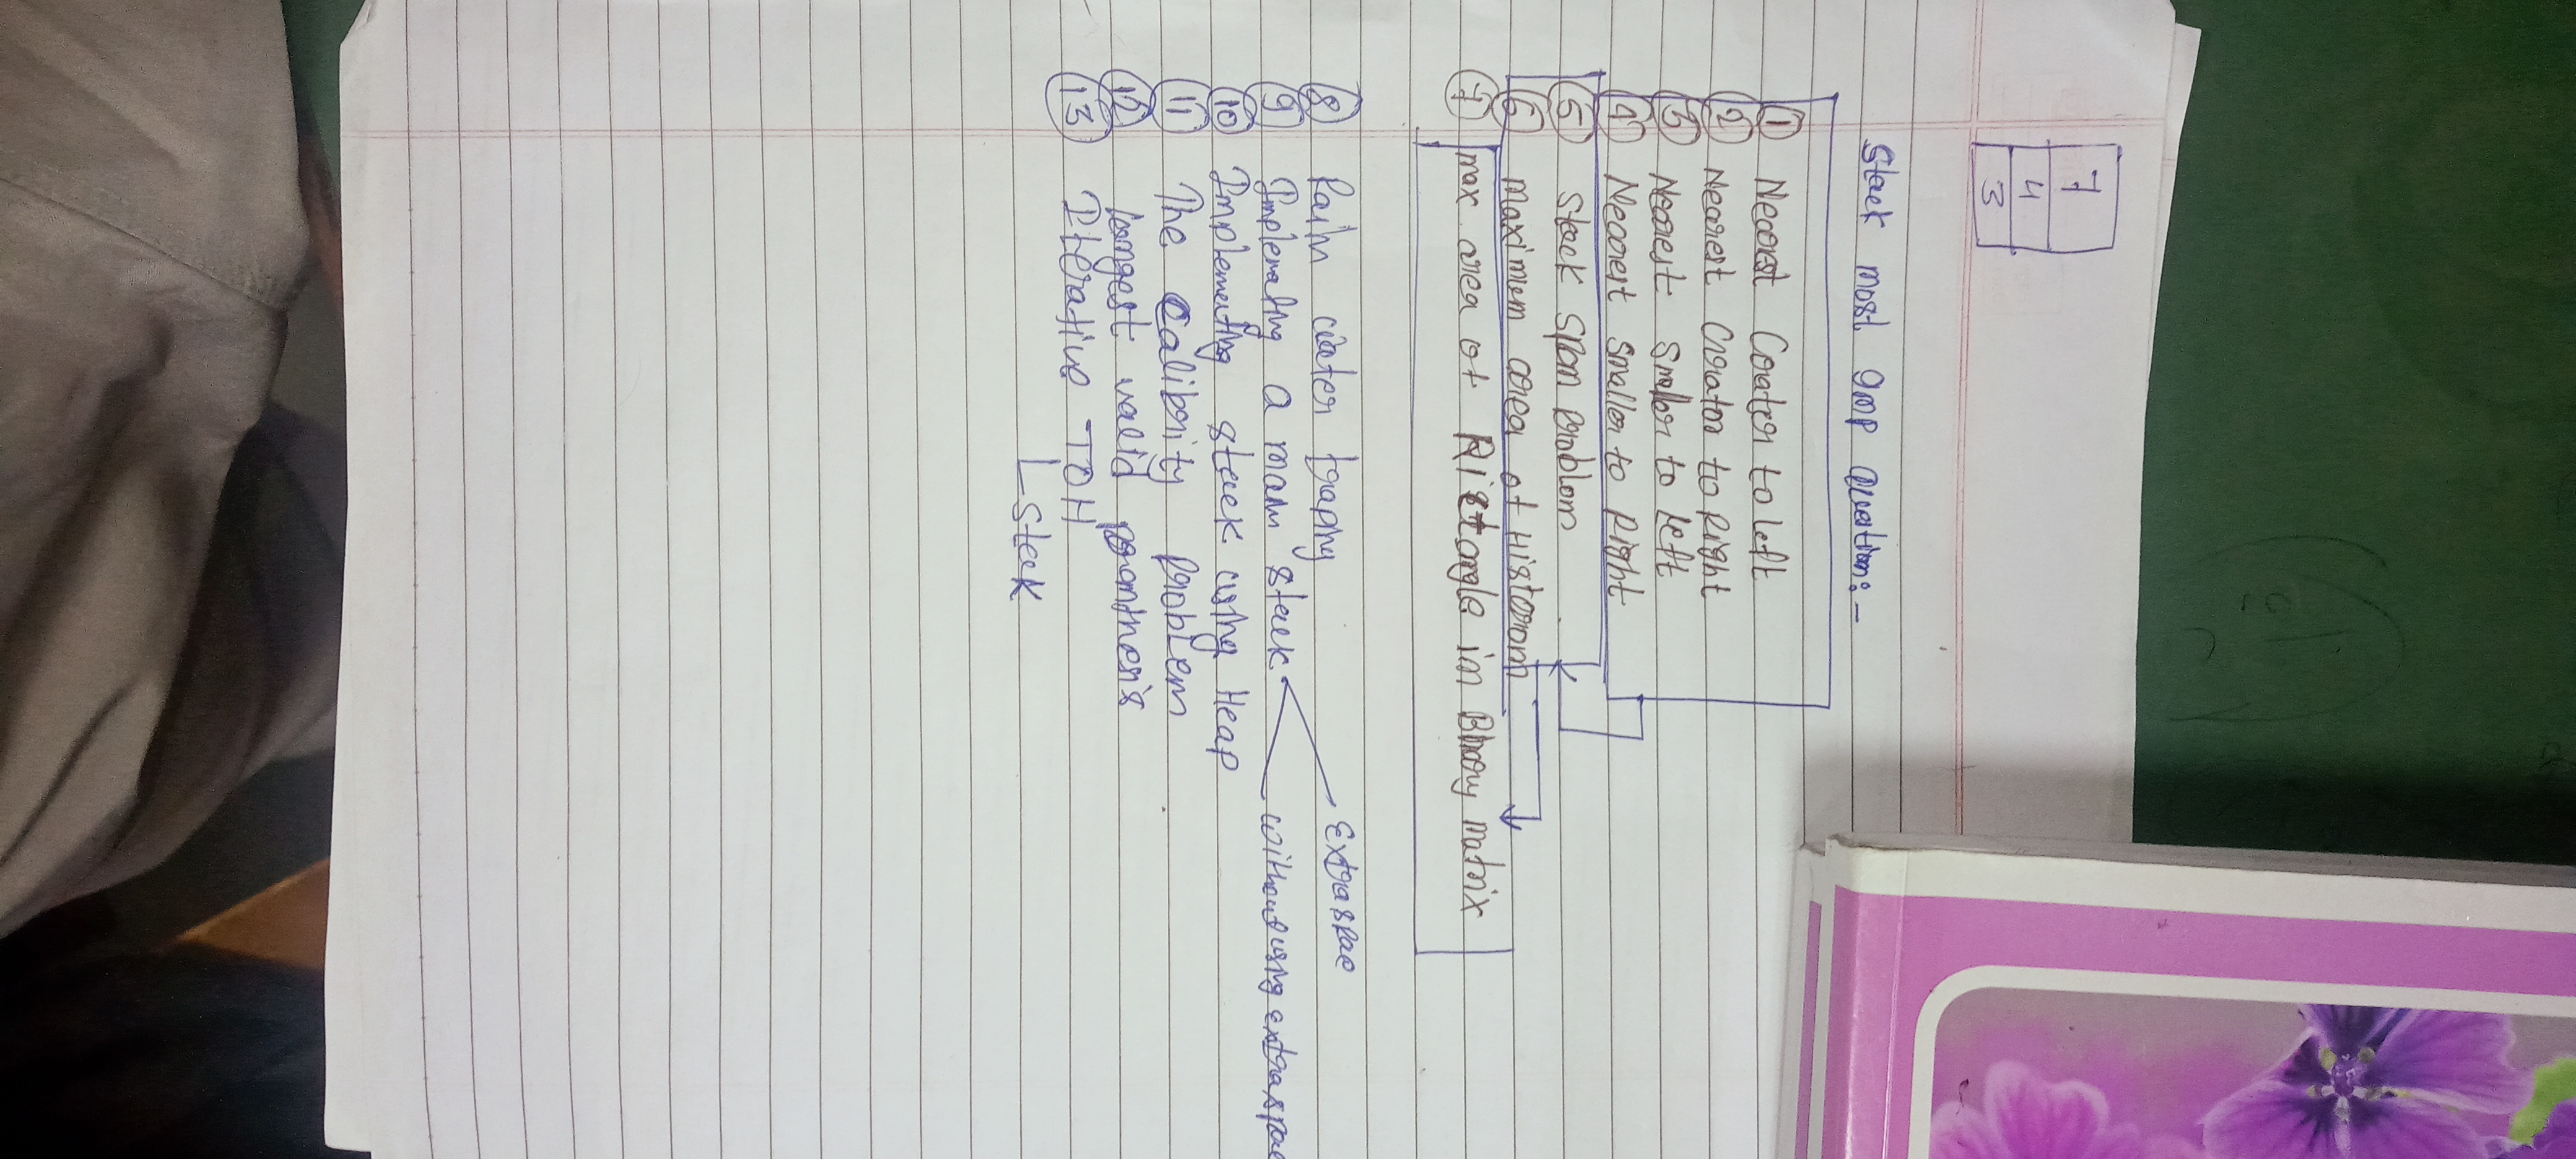 7
4
3
Stack most Imp Question:-
① Nearest Greater to left
② Nearest Greator to Right
③ Nearest Smaller to left
④ Nearest Smaller to Right
⑤ Stack Span Problom
⑥ maximum area of Histogram
⑦ max area of Rictangle in Binary matrix
⑧ Rain water Traping
Extra space
⑨ Implemating a mam stack
without using extra space
⑩ Implementing stack using Heap
⑪ The Calibrity problem
⑫ longest valid paranthesis
⑬ Iterative TOH
Stack